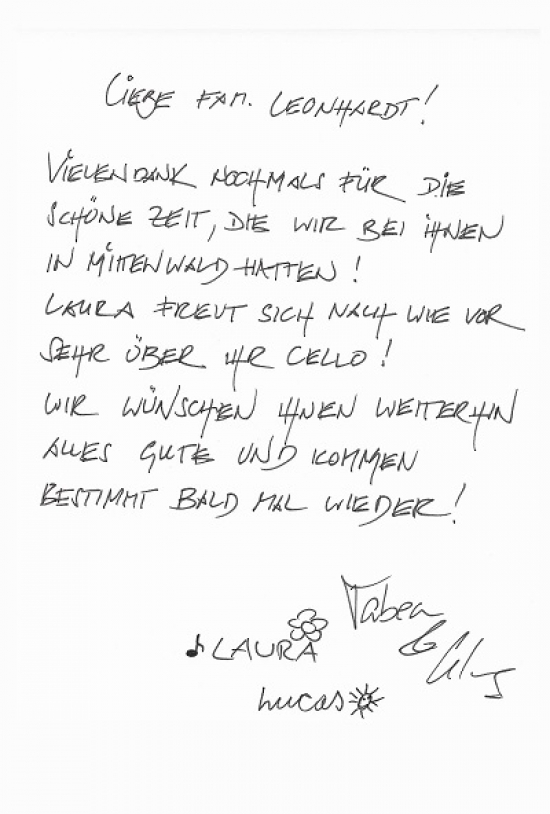 LIEBE FAM. LEONHARDT!
VIELENDANK NOCHMALS FÜR DIE
SCHÖNE ZEIT, DIE WIR BEI IHNEN
IN MITTENWALD HATTEN!
LAURA FREUT SICH NACH WIE VOR
SEHR ÜBER IHR CELLO!
WIR WÜNSCHEN IHNEN WEITERHIN
ALLES GUTE UND KOMMEN
BESTIMMT BALD MAL WIEDER!
Tabea
LAURA
&
Lucas